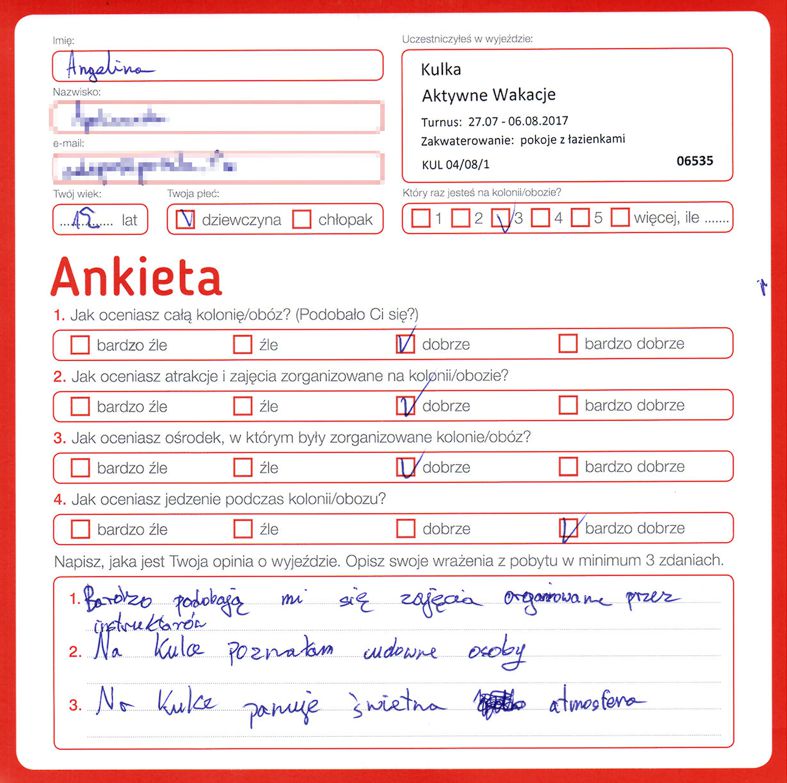 Imię:
Angelina
Nazwisko:
e-mail:
Twój wiek:
Twoja płeć:
....15.... lat
dziewczyna chłopak
Uczestniczyłeś w wyjeździe:
Kulka
Aktywne Wakacje
Turnus: 27.07 - 06.08.2017
Zakwaterowanie: pokoje z łazienkami
KUL 04/08/1 06535
Który raz jesteś na kolonii/obozie?
1 2 3 4 5 więcej, ile .......
Ankieta
1. Jak oceniasz całą kolonię/obóz? (Podobało Ci się?)
bardzo źle źle dobrze bardzo dobrze
2. Jak oceniasz atrakcje i zajęcia zorganizowane na kolonii/obozie?
bardzo źle źle dobrze bardzo dobrze
3. Jak oceniasz ośrodek, w którym były zorganizowane kolonie/obóz?
bardzo źle źle dobrze bardzo dobrze
4. Jak oceniasz jedzenie podczas kolonii/obozu?
bardzo źle źle dobrze bardzo dobrze
Napisz, jaka jest Twoja opinia o wyjeździe. Opisz swoje wrażenia z pobytu w minimum 3 zdaniach.
1. Bardzo podobają mi się zajęcia organizowane przez
instruktorów
2. Na Kulce poznałam cudowne osoby
3. Na Kulce panuje świetna atmosfera